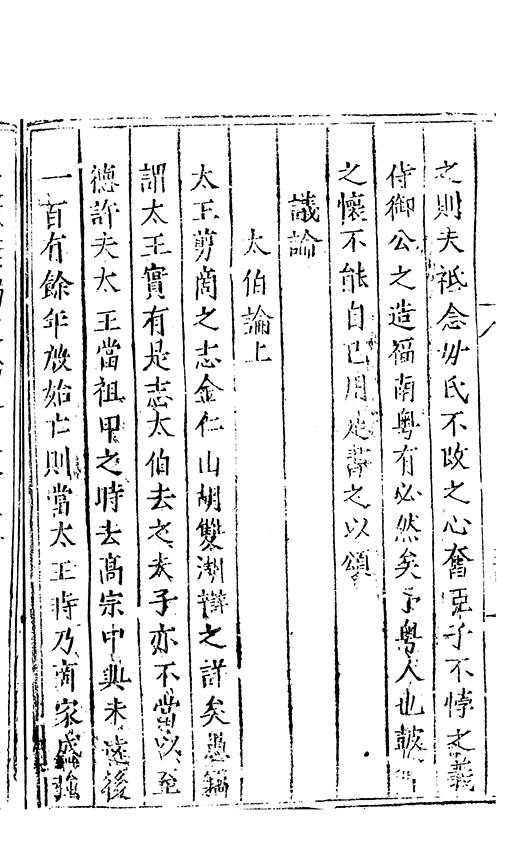 之則夫祗念母氏不改之心奮亞子不悖之義
侍御公之造福南粵有必然矣予粵人也
之懷不能自已用是書之以頌
議論
太伯論上
太王剪商之志金仁山胡雙湖辯之詳矣愚竊
謂太王實有是志太伯去之夫子亦不當以至
德許夫太王當祖甲之時去高宗中興未遠後
一百有餘年殷始亡則當太王時乃商家盛強